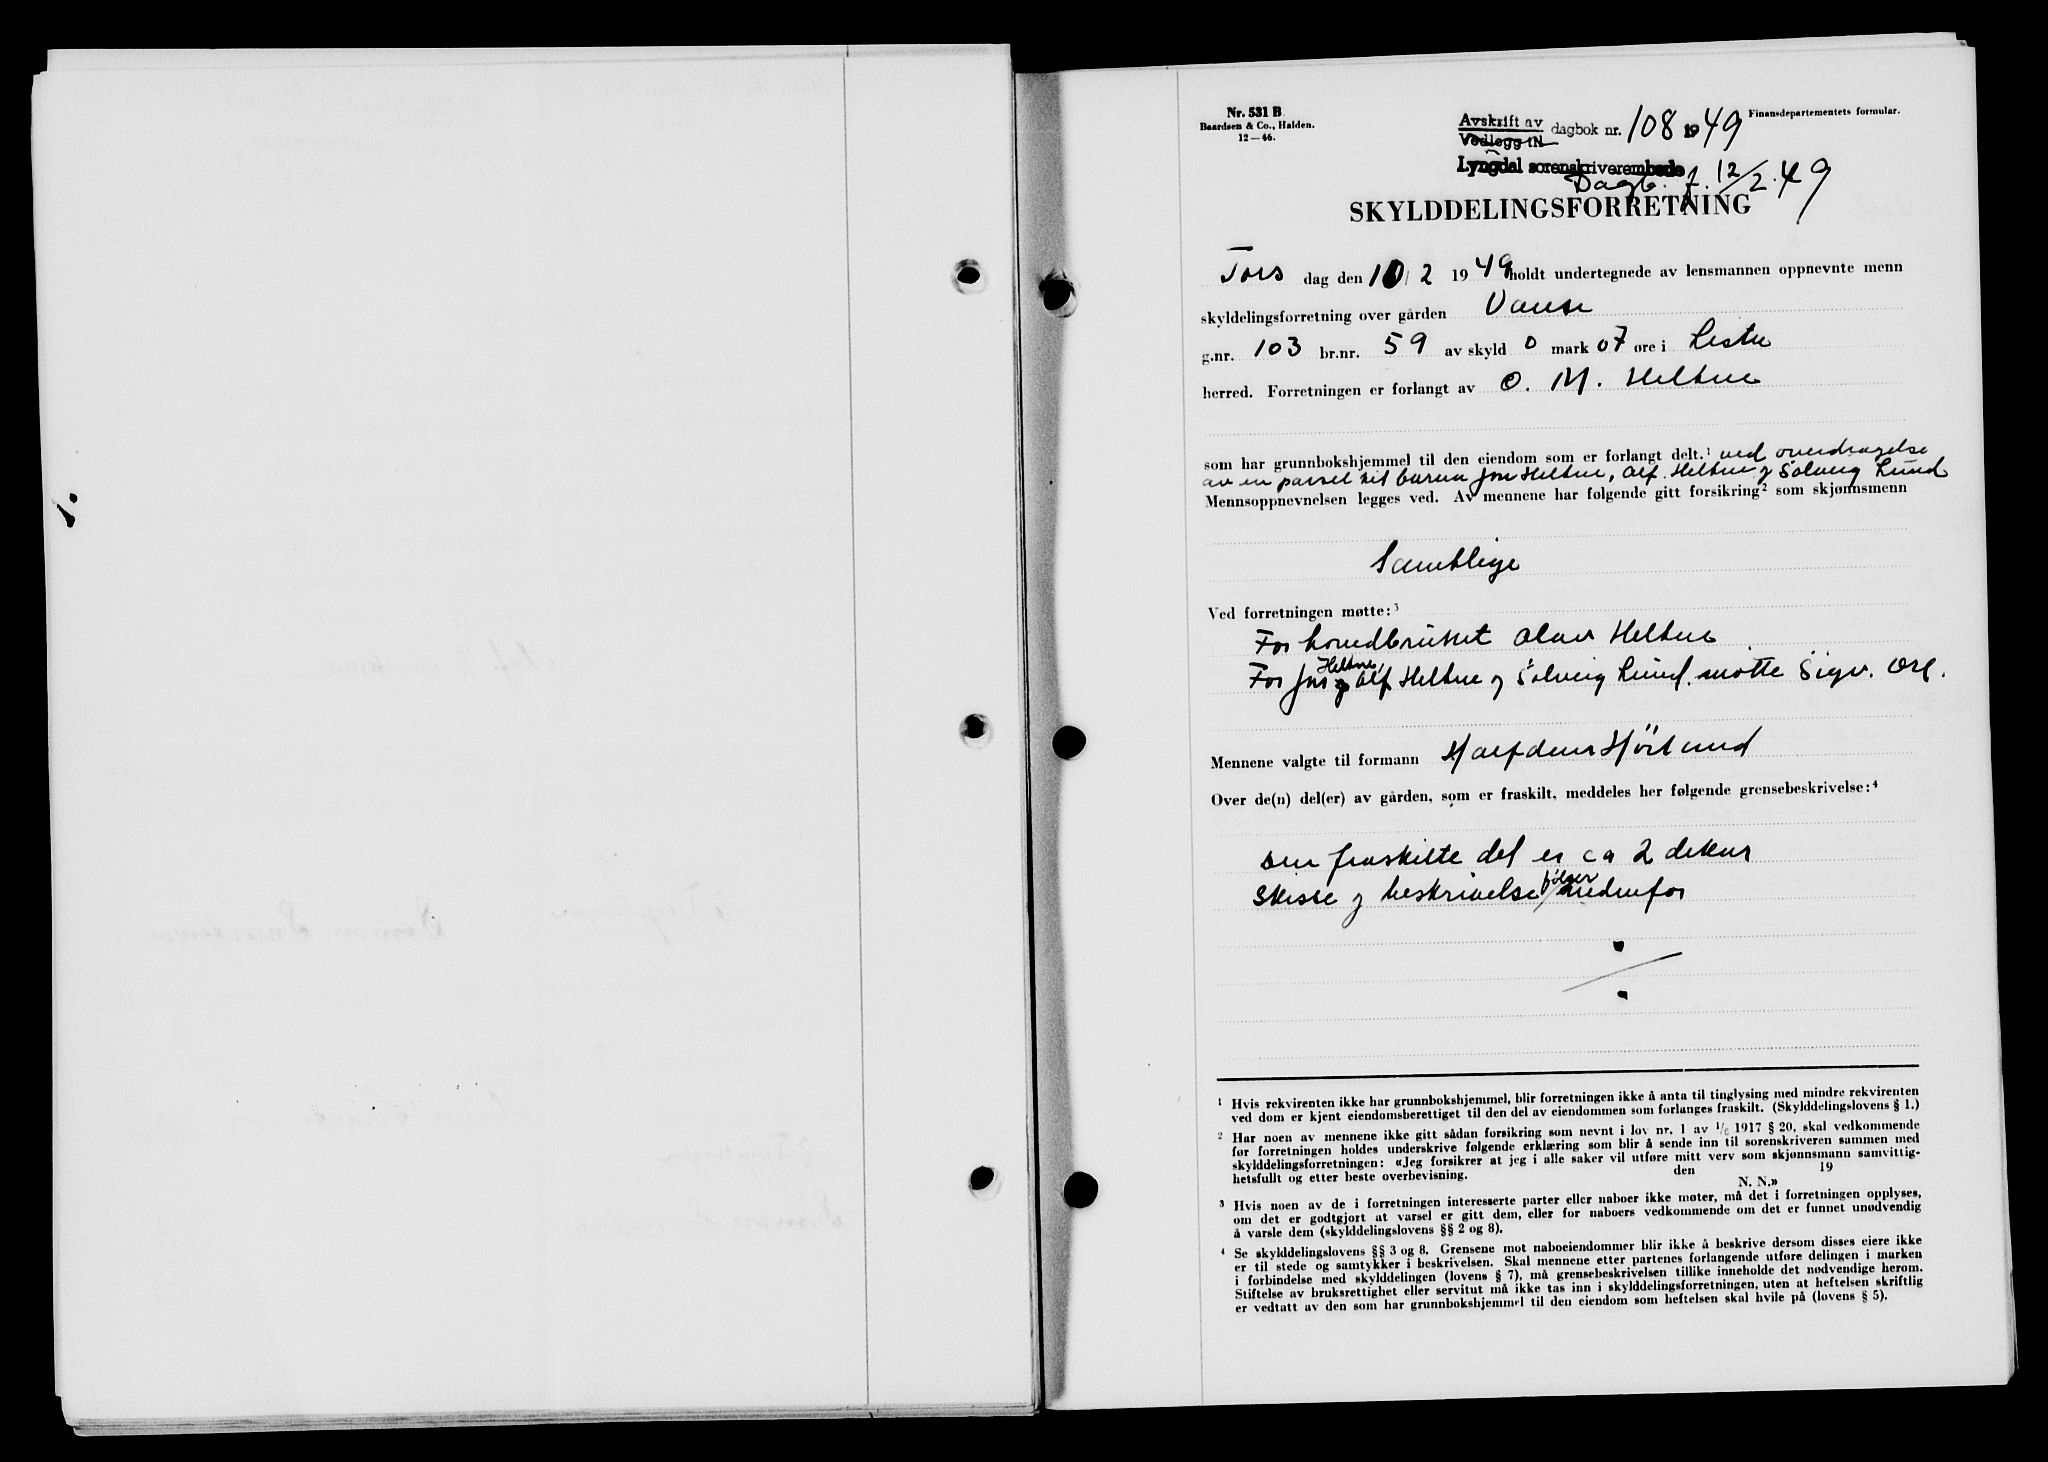 Nr. 531 B
Baardsen & Co., Halden.
12—46.
Avskrift av
Vedlegg til
dagbok nr. 108 1949
Finansdepartementets formular.
Lyngdal sorenskriverembede
Dagb. f. 12/2.49
SKYLDDELINGSFORRETNING
Tors dag den 10/2 1949 holdt undertegnede av lensmannen oppnevnte menn
skyldelingsforretning over gården Vanse
g.nr. 103 br.nr. 59 av skyld 0 mark 07 øre i Lista
herred. Forretningen er forlangt av O. M. Heltne
som har grunnbokshjemmel til den eiendom som er forlangt delt.¹ ved overdragelse
av en parsel til barna Jon Heltne, Alf Heltne og Solveig Lund
Mennsoppnevnelsen legges ved. Av mennene har følgende gitt forsikring² som skjønnsmenn
Samtlige
Ved forretningen møtte:³
For hovedbruket Olav Heltne
For Jon Heltne, Alf Heltne og Solveig Lund møtte Sigv. Ore.
Mennene valgte til formann Halfdan Hörlund
Over de(n) del(er) av gården, som er fraskilt, meddeles her følgende grensebeskrivelse:⁴
Den fraskilte del er ca 2 dekar
Skisse og beskrivelse følger nedenfor
¹ Hvis rekvirenten ikke har grunnbokshjemmel, blir forretningen ikke å anta til tinglysing med mindre rekvirenten
ved dom er kjent eiendomsberettiget til den del av eiendommen som forlanges fraskilt. (Skylddelingslovens § 1.)
² Har noen av mennene ikke gitt sådan forsikring som nevnt i lov nr. 1 av 1/6 1917 § 20, skal vedkommende
før forretningen holdes underskrive følgende erklæring som blir å sende inn til sorenskriveren sammen med
skylddelingsforretningen: «Jeg forsikrer at jeg i alle saker vil utføre mitt verv som skjønnsmann samvittig-
hetsfullt og etter beste overbevisning.
den 19
N. N.»
³ Hvis noen av de i forretningen interesserte parter eller naboer ikke møter, må det i forretningen opplyses,
om det er godtgjort at varsel er gitt dem, eller for naboers vedkommende om det er funnet unødvendig
å varsle dem (skylddelingslovens §§ 2 og 8).
⁴ Se skylddelingslovens §§ 3 og 8. Grensene mot naboeiendommer blir ikke å beskrive dersom disses eiere ikke
er til stede og samtykker i beskrivelsen. Skal mennene etter partenes forlangende utføre delingen i marken
i forbindelse med skylddelingen (lovens § 7), må grensebeskrivelsen tillike inneholde det nødvendige herom.
Stiftelse av bruksrettighet eller servitut må ikke tas inn i skylddelingsforretningen, uten at heftelsen skriftlig
er vedtatt av den som har grunnbokshjemmel til den eiendom som heftelsen skal hvile på (lovens § 5).